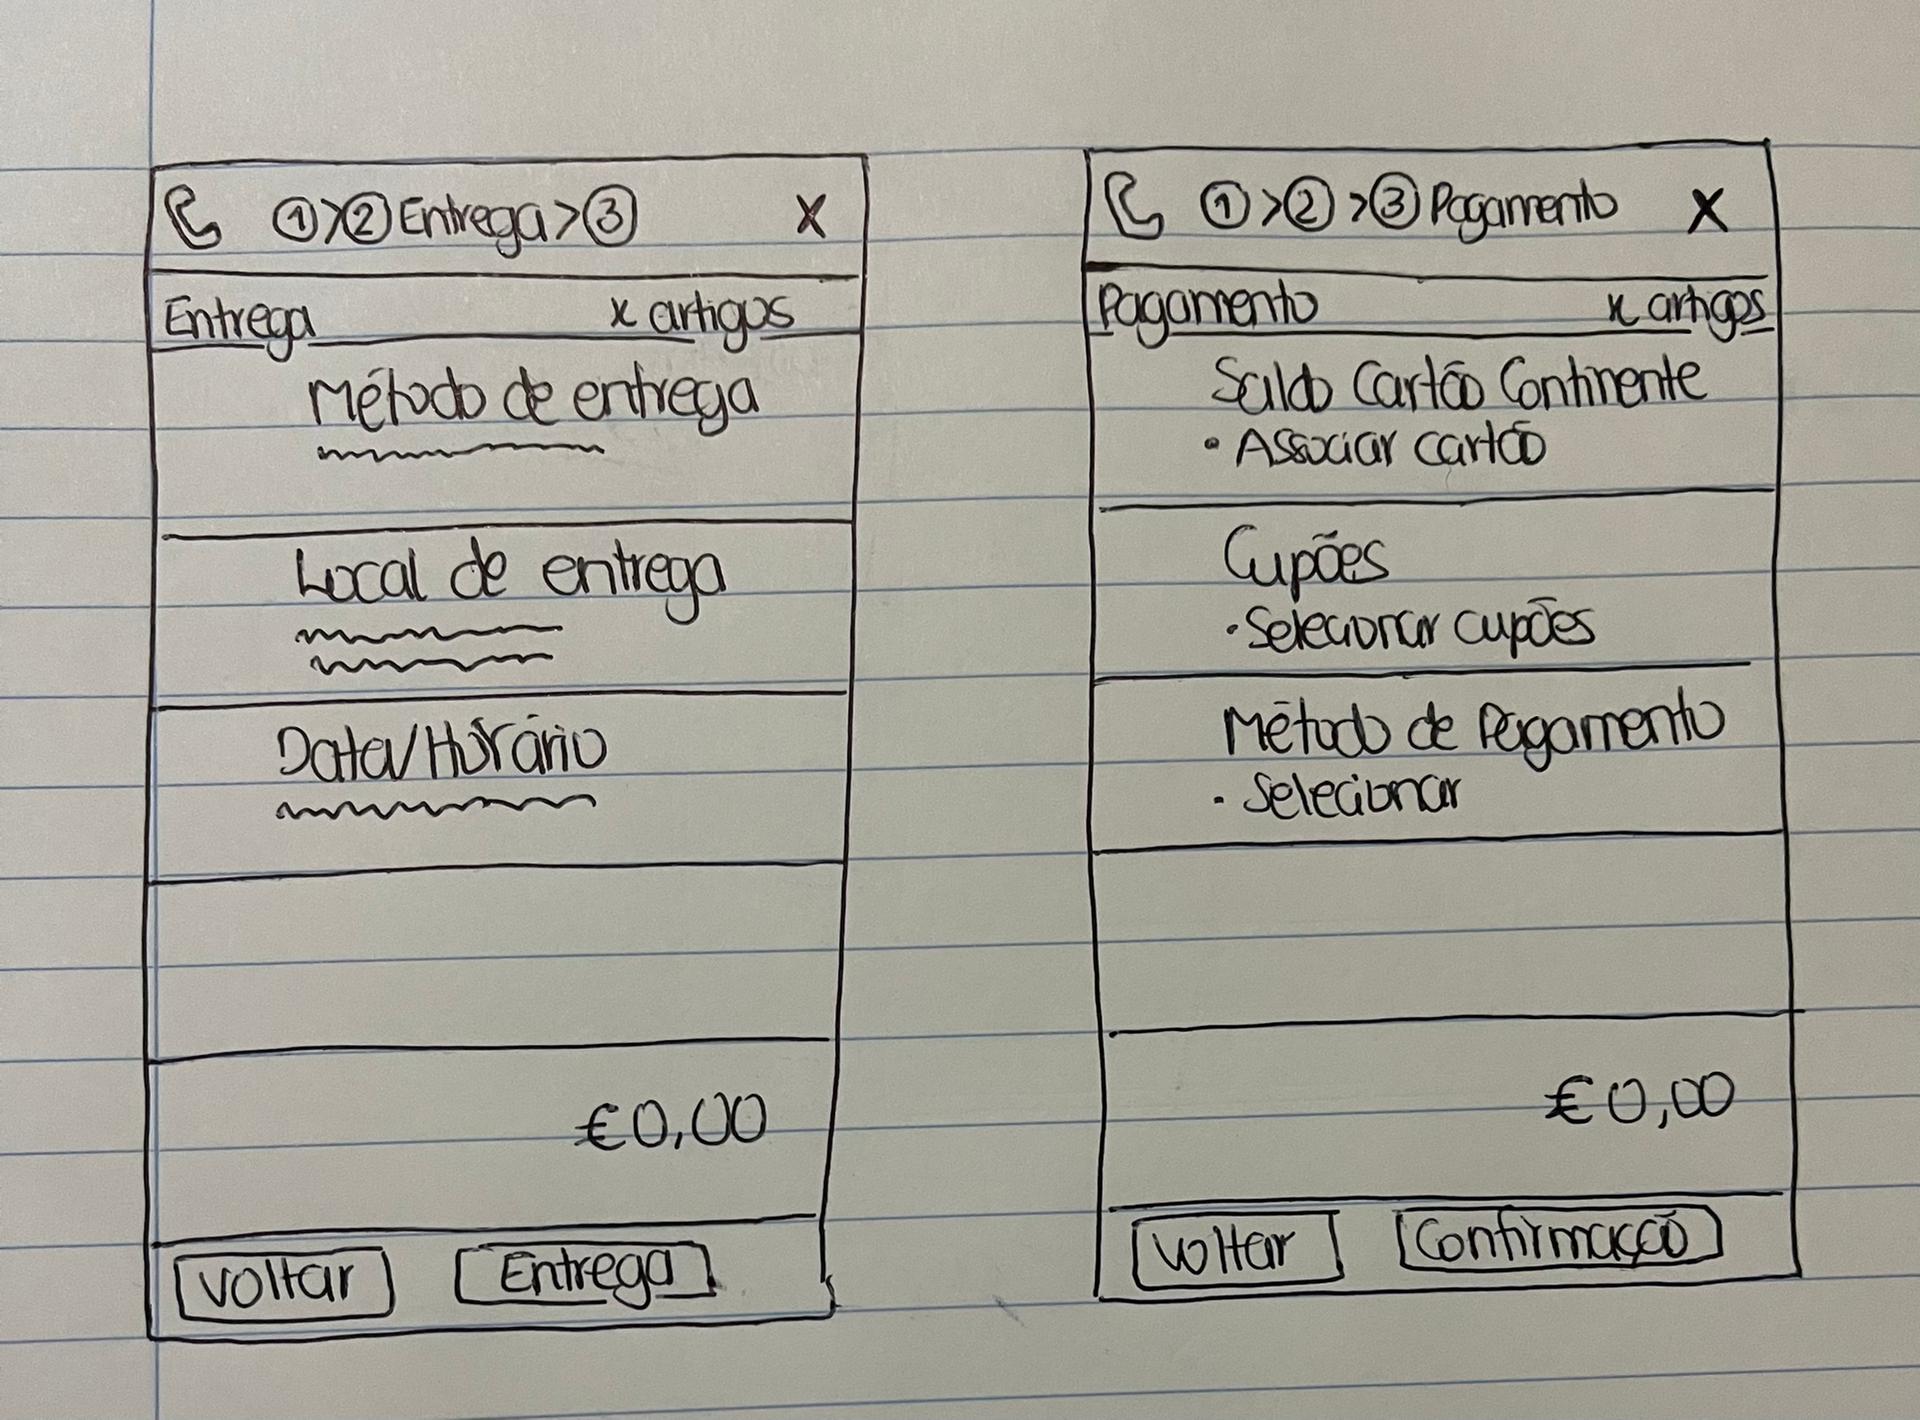 1 > 2 Entrega > 3 X
Entrega x artigos
Método de entrega
Local de entrega
Data/Horário
€0,00
Voltar Entrega
1 > 2 > 3 Pagamento X
Pagamento x artigos
Saldo Cartão Continente
• Associar cartão
Cupões
• Selecionar cupões
Método de Pagamento
• Selecionar
€0,00
Voltar Confirmação